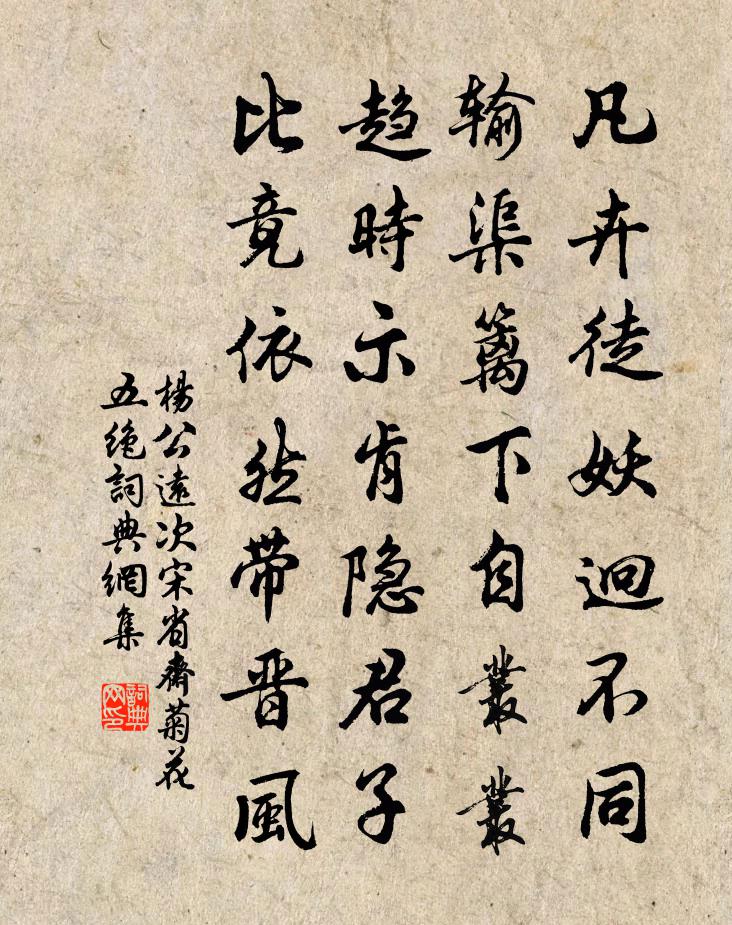 凡卉徒妖迥不同
输渠篱下自叢叢
趋時示肯隐君子
比竟依然带晋風
楊公遠次宋省齋菊花
五绝詞典網集
詞典网印